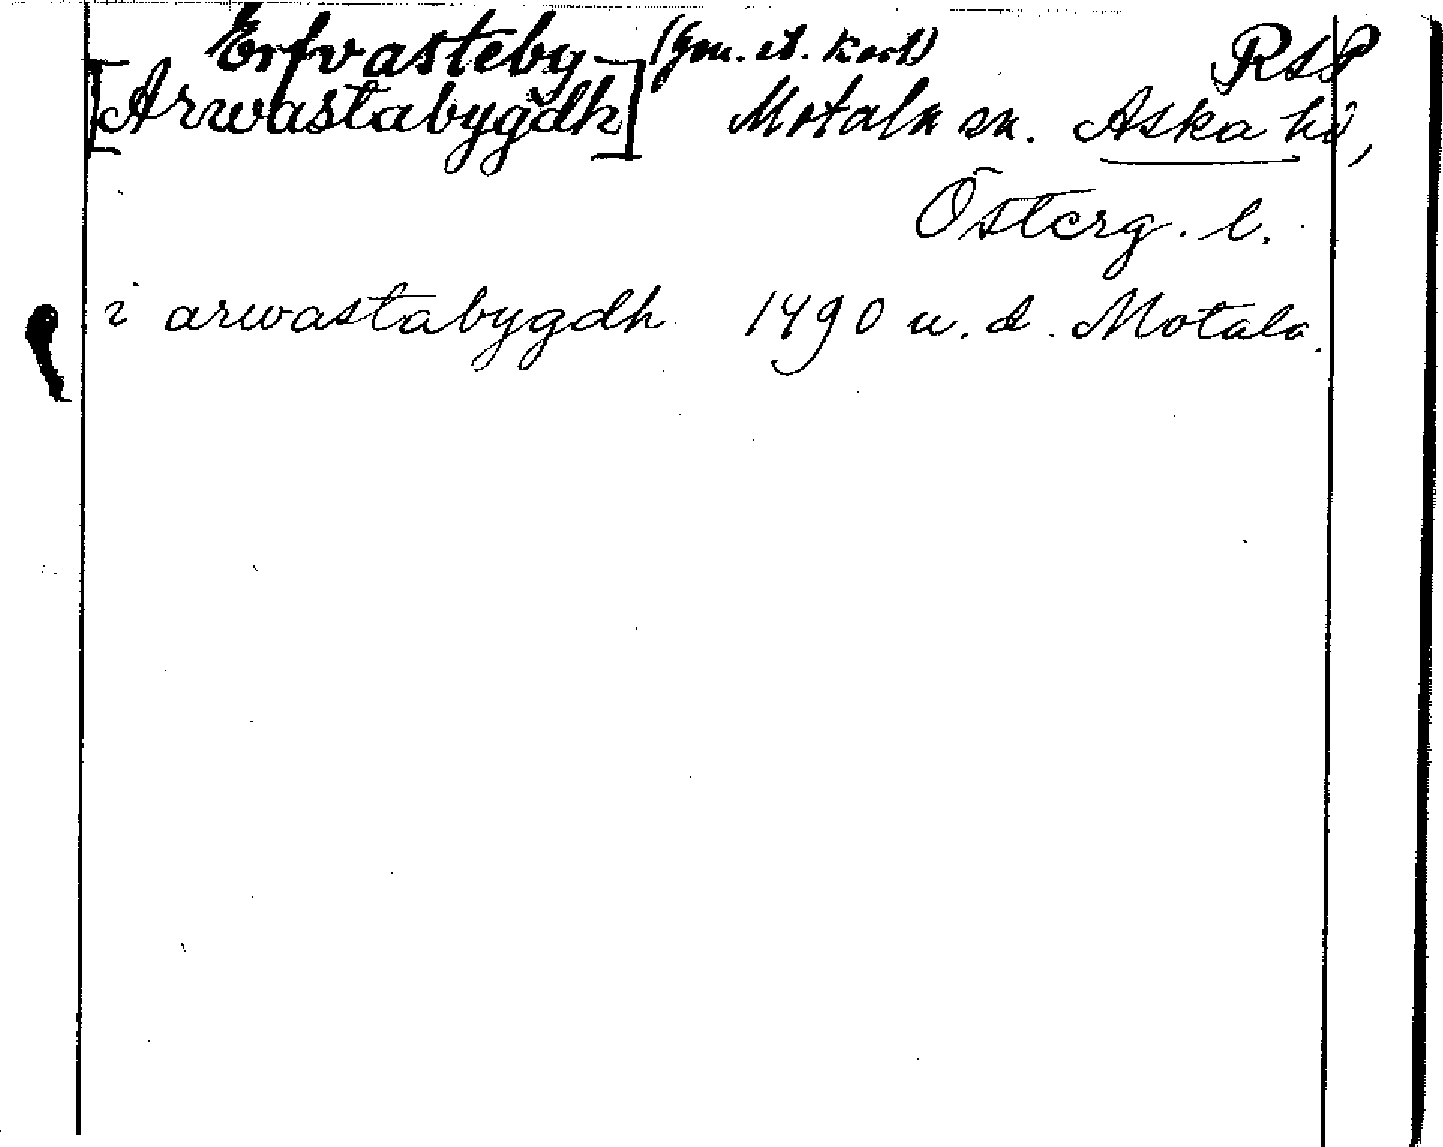 Erfvasteby (Gm. et. kort) RSP
[Arwastabygdh] Motala sn. Aska hd,
Österg. l.
i arwastabygdh 1490 u. d. Motala.